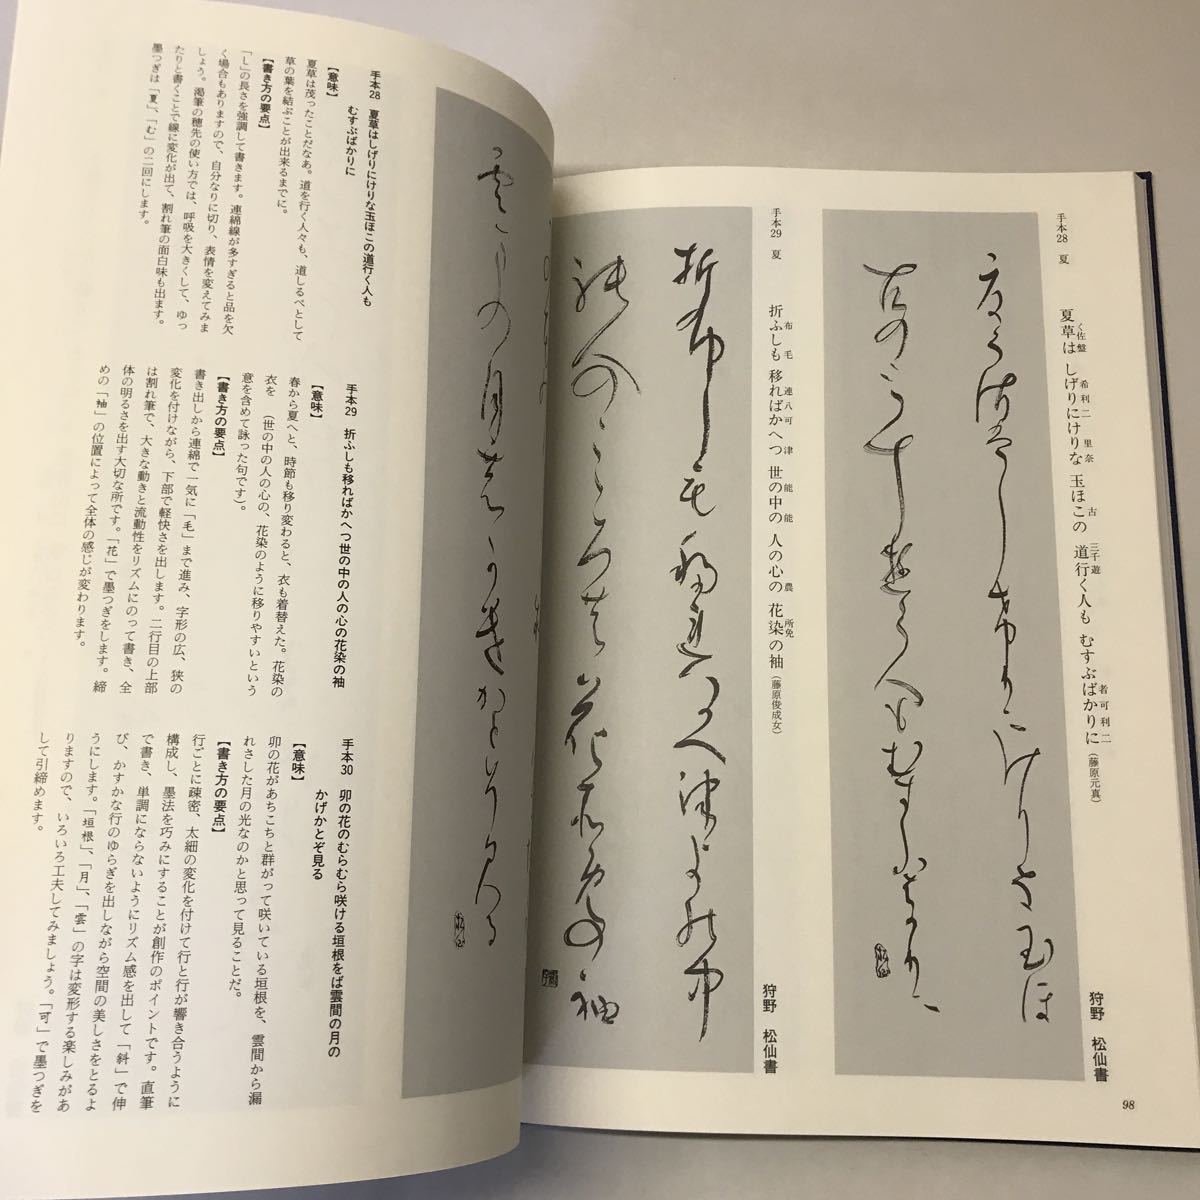 手本28　夏
夏草は しげりにけりな 玉ほこの 道行く人も むすぶばかりに（藤原元真）
く佐盤 希利二 里奈 古 三千遊 者可利二
狩野　松仙書
手本29　夏
折ふしも 移ればかへつ 世の中の 人の心の 花染の袖（藤原俊成女）
布 毛 連八可 津 能能 農 所免
狩野　松仙書
98
手本28　夏草はしげりにけりな玉ほこの道行く人も
むすぶばかりに
【意味】
夏草は茂ったことだなあ。道を行く人々も、道しるべとして
草の葉を結ぶことが出来るまでに。
【書き方の要点】
「し」の長さを強調して書きます。連綿線が多すぎると品を欠
く場合もありますので、自分なりに切り、表情を変えてみま
しょう。渇筆の穂先の使い方では、呼吸を大きくして、ゆっ
たりと書くことで線に変化が出て、割れ筆の面白味も出ます。
墨つぎは「夏」、「む」の二回にします。
手本29　折ふしも移ればかへつ世の中の人の心の花染の袖
【意味】
春から夏へと、時節も移り変わると、衣も着替えた。花染の
衣を　（世の中の人の心の、花染のように移りやすいという
意を含めて詠った句です）。
【書き方の要点】
書き出しから連綿で一気に「毛」まで進み、字形の広、狭の
変化を付けながら、下部で軽快さを出します。二行目の上部
は割れ筆で、大きな動きと流動性をリズムにのって書き、全
体の明るさを出す大切な所です。「花」で墨つぎをします。締
めの「袖」の位置によって全体の感じが変わります。
手本30　卯の花のむらむら咲ける垣根をば雲間の月の
かげかとぞ見る
【意味】
卯の花があちこちと群がって咲いている垣根を、雲間から漏
れさした月の光なのかと思って見ることだ。
【書き方の要点】
行ごとに疎密、太細の変化を付けて行と行が響き合うように
構成し、墨法を巧みにすることが創作のポイントです。直筆
で書き、単調にならないようにリズム感を出して「斜」で伸
び、かすかな行のゆらぎを出しながら空間の美しさをとるよ
うにします。「垣根」、「月」、「雲」の字は変形する楽しみがあ
りますので、いろいろ工夫してみましょう。「可」で墨つぎを
して引締めます。